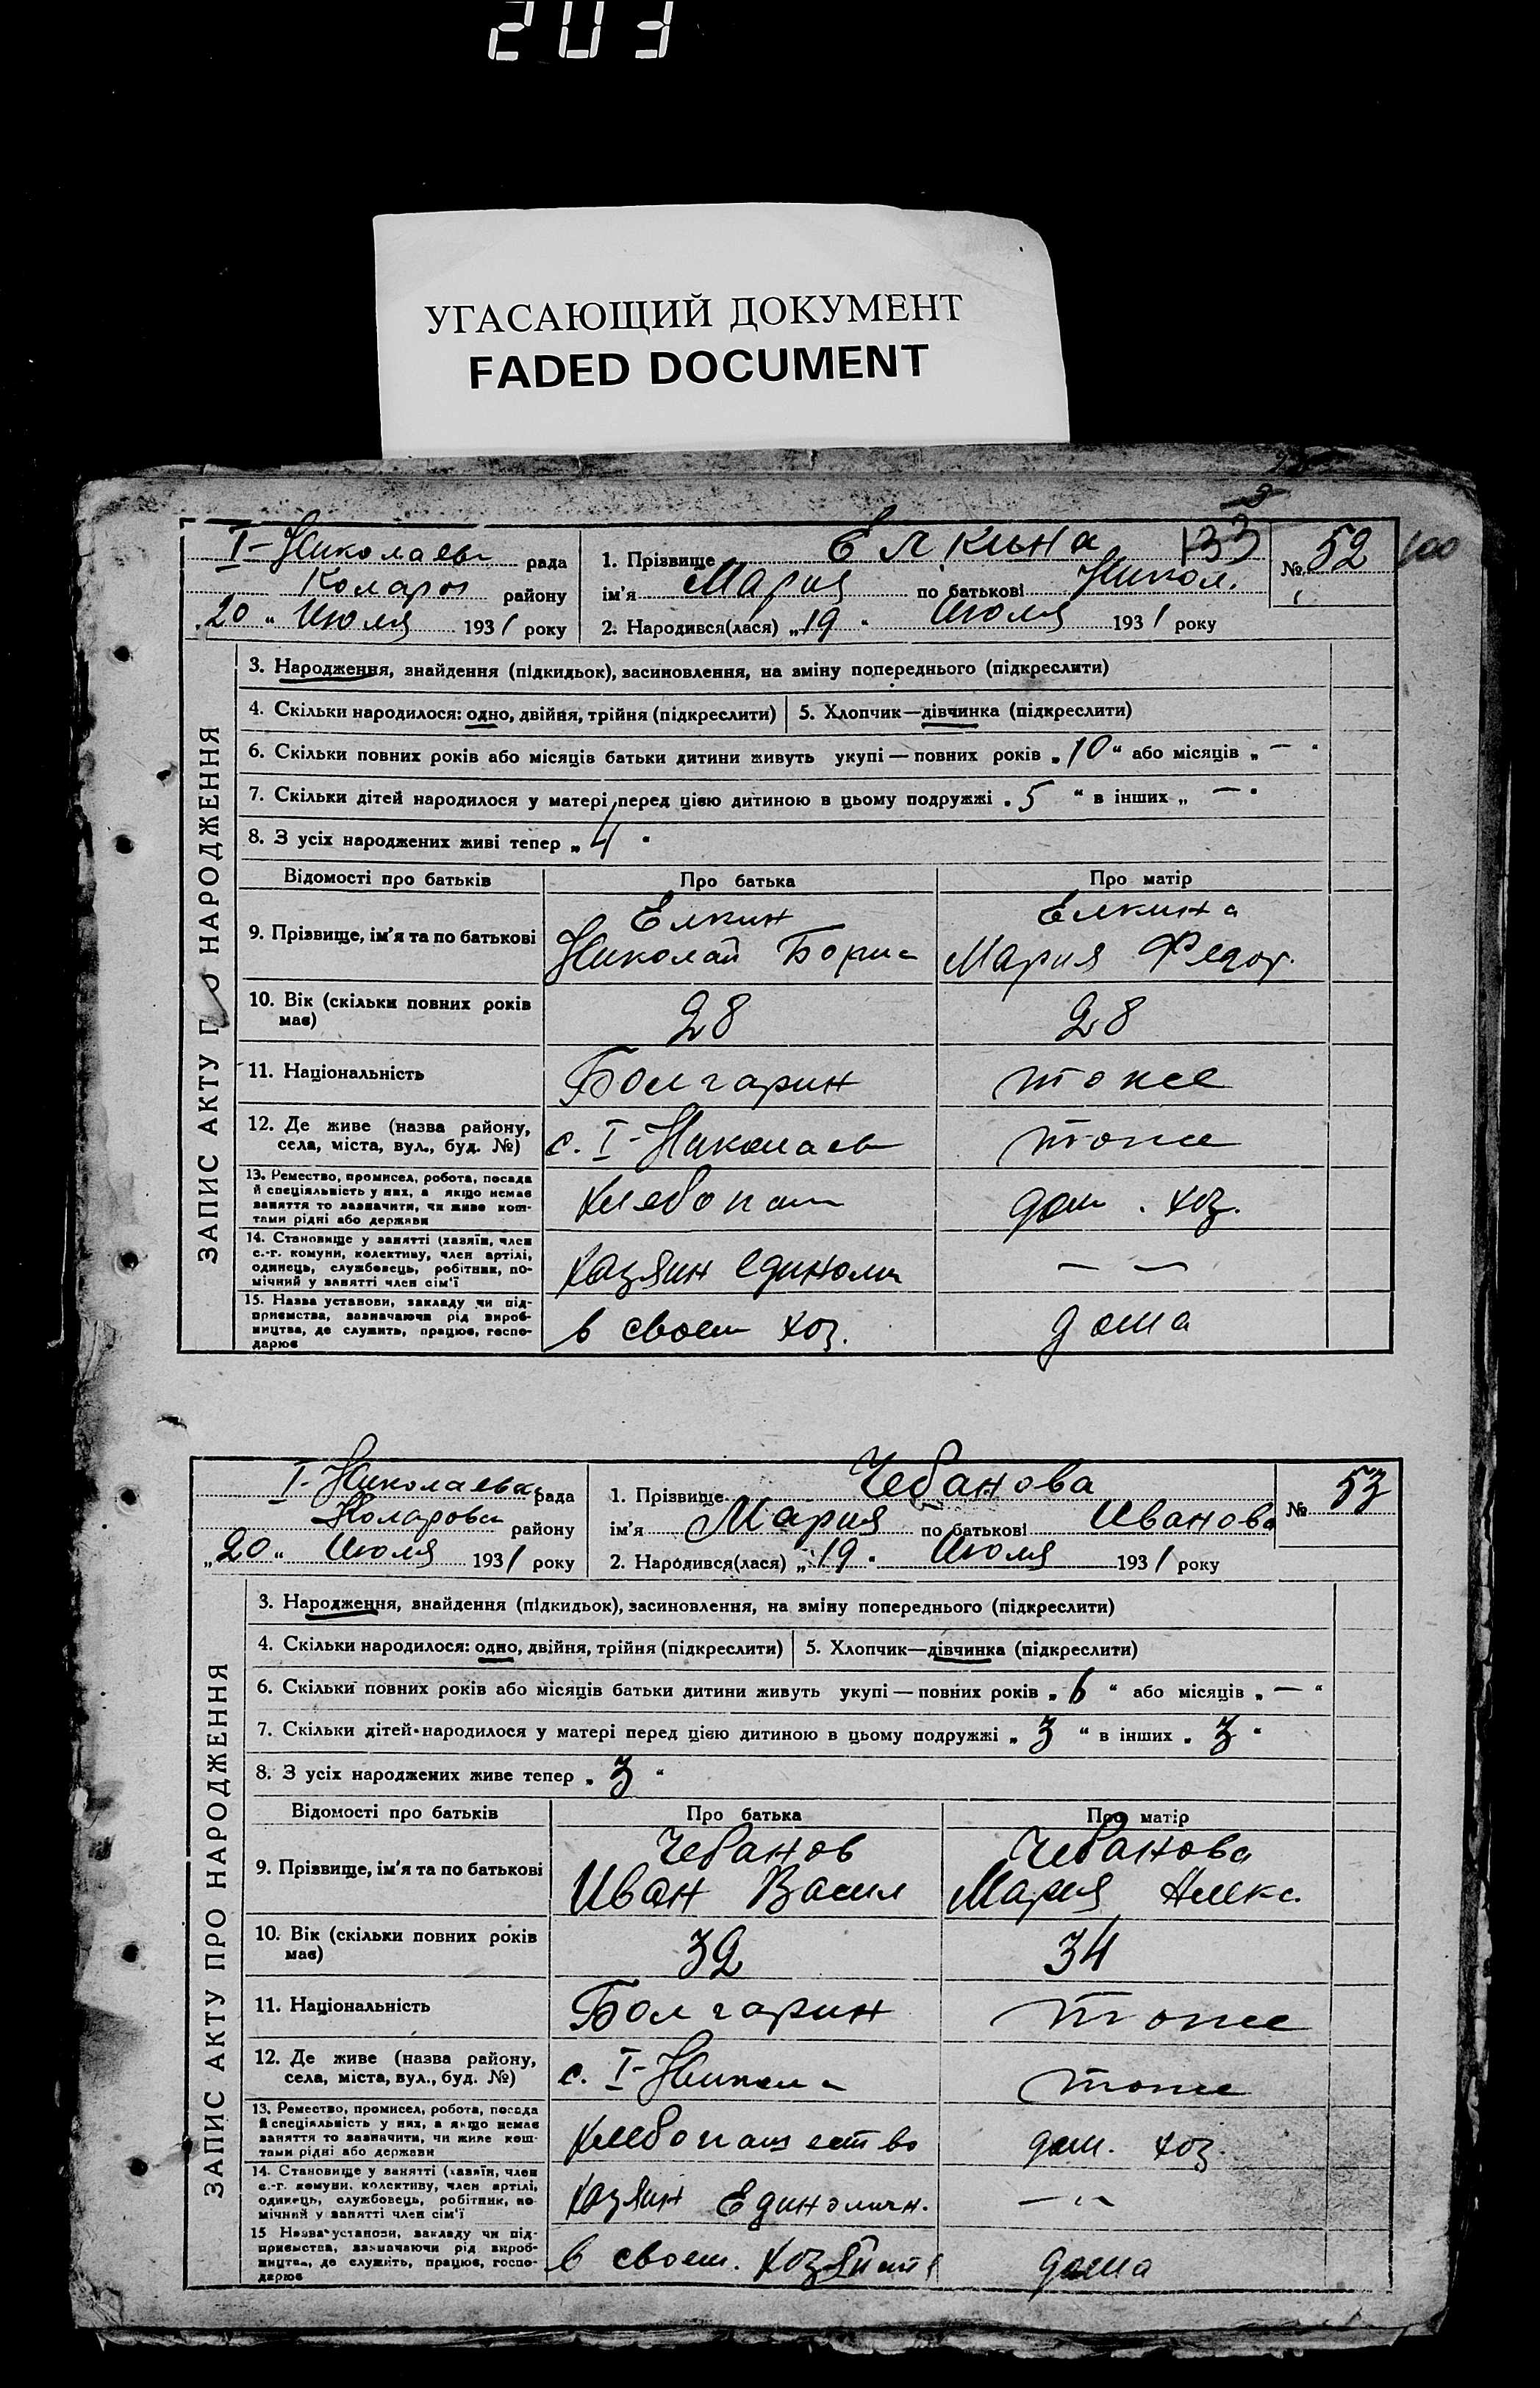 203
УГАСАЮЩИЙ ДОКУМЕНТ
FADED DOCUMENT
ЗАПИС АКТУ ПРО НАРОДЖЕННЯ
І-Николаев рада
Коларов району
„20“ Июля 1931 року
1. Прізвище Елкина 133
№ 52 100
ім'я Мария по батькові Никол.
2. Народився(лася) „19“ Июля 1931 року
3. Народження, знайдення (підкидьок), засиновлення, на зміну попереднього (підкреслити)
4. Скільки народилося: одно, двійня, трійня (підкреслити) 5. Хлопчик—дівчинка (підкреслити)
6. Скільки повних років або місяців батьки дитини живуть укупі — повних років „10“ або місяців „—“
7. Скільки дітей народилося у матері перед цією дитиною в цьому подружжі „5“ в інших „—“
8. З усіх народжених живі тепер „4“
Відомості про батьків Про батька Про матір
9. Прізвище, ім'я та по батькові
Елкин Николай Борис
Елкина Мария Федор.
10. Вік (скільки повних років має) 28 28
11. Національність Болгарин тоже
12. Де живе (назва району, села, міста, вул., буд. №) с. І-Николаев тоже
13. Ремество, промисел, робота, посада й спеціяльність у них, а якщо немає заняття то зазначити, чи живе коштами рідні або держави
Хлебопаш дом. хоз.
14. Становище у занятті (хазяїн, член с.-г. комуни, колективу, член артілі, одинець, службовець, робітник, помічний у занятті член сім'ї
хозяин единолич — —
15. Назва установи, закладу чи підприємства, зазначаючи рід виробництва, де служить, працює, господарює
в своем хоз. дома
ЗАПИС АКТУ ПРО НАРОДЖЕННЯ
І-Николаевка рада
Коларовск району
„20“ Июля 1931 року
1. Прізвище Чебанова
№ 53
ім'я Мария по батькові Иванова
2. Народився(лася) „19“ Июля 1931 року
3. Народження, знайдення (підкидьок), засиновлення, на зміну попереднього (підкреслити)
4. Скільки народилося: одно, двійня, трійня (підкреслити) 5. Хлопчик—дівчинка (підкреслити)
6. Скільки повних років або місяців батьки дитини живуть укупі — повних років „6“ або місяців „—“
7. Скільки дітей народилося у матері перед цією дитиною в цьому подружжі „3“ в інших „3“
8. З усіх народжених живе тепер „3“
Відомості про батьків Про батька Про матір
9. Прізвище, ім'я та по батькові
Чебанов Иван Васил
Чебанова Мария Алекс.
10. Вік (скільки повних років має) 32 34
11. Національність Болгарин тоже
12. Де живе (назва району, села, міста, вул., буд. №) с. І-Никола тоже
13. Ремество, промисел, робота, посада й спеціяльність у них, а якщо немає заняття то зазначити, чи живе коштами рідні або держави
Хлебопашество дом. хоз.
14. Становище у занятті (хазяїн, член с.-г. комуни, колективу, член артілі, одинець, службовець, робітник, помічний у занятті член сім'ї
хозяин Единоличн. — " —
15 Назва установи, закладу чи підприємства, зазначаючи рід виробництва, де служить, працює, господарює
в своем. хозяйств дома